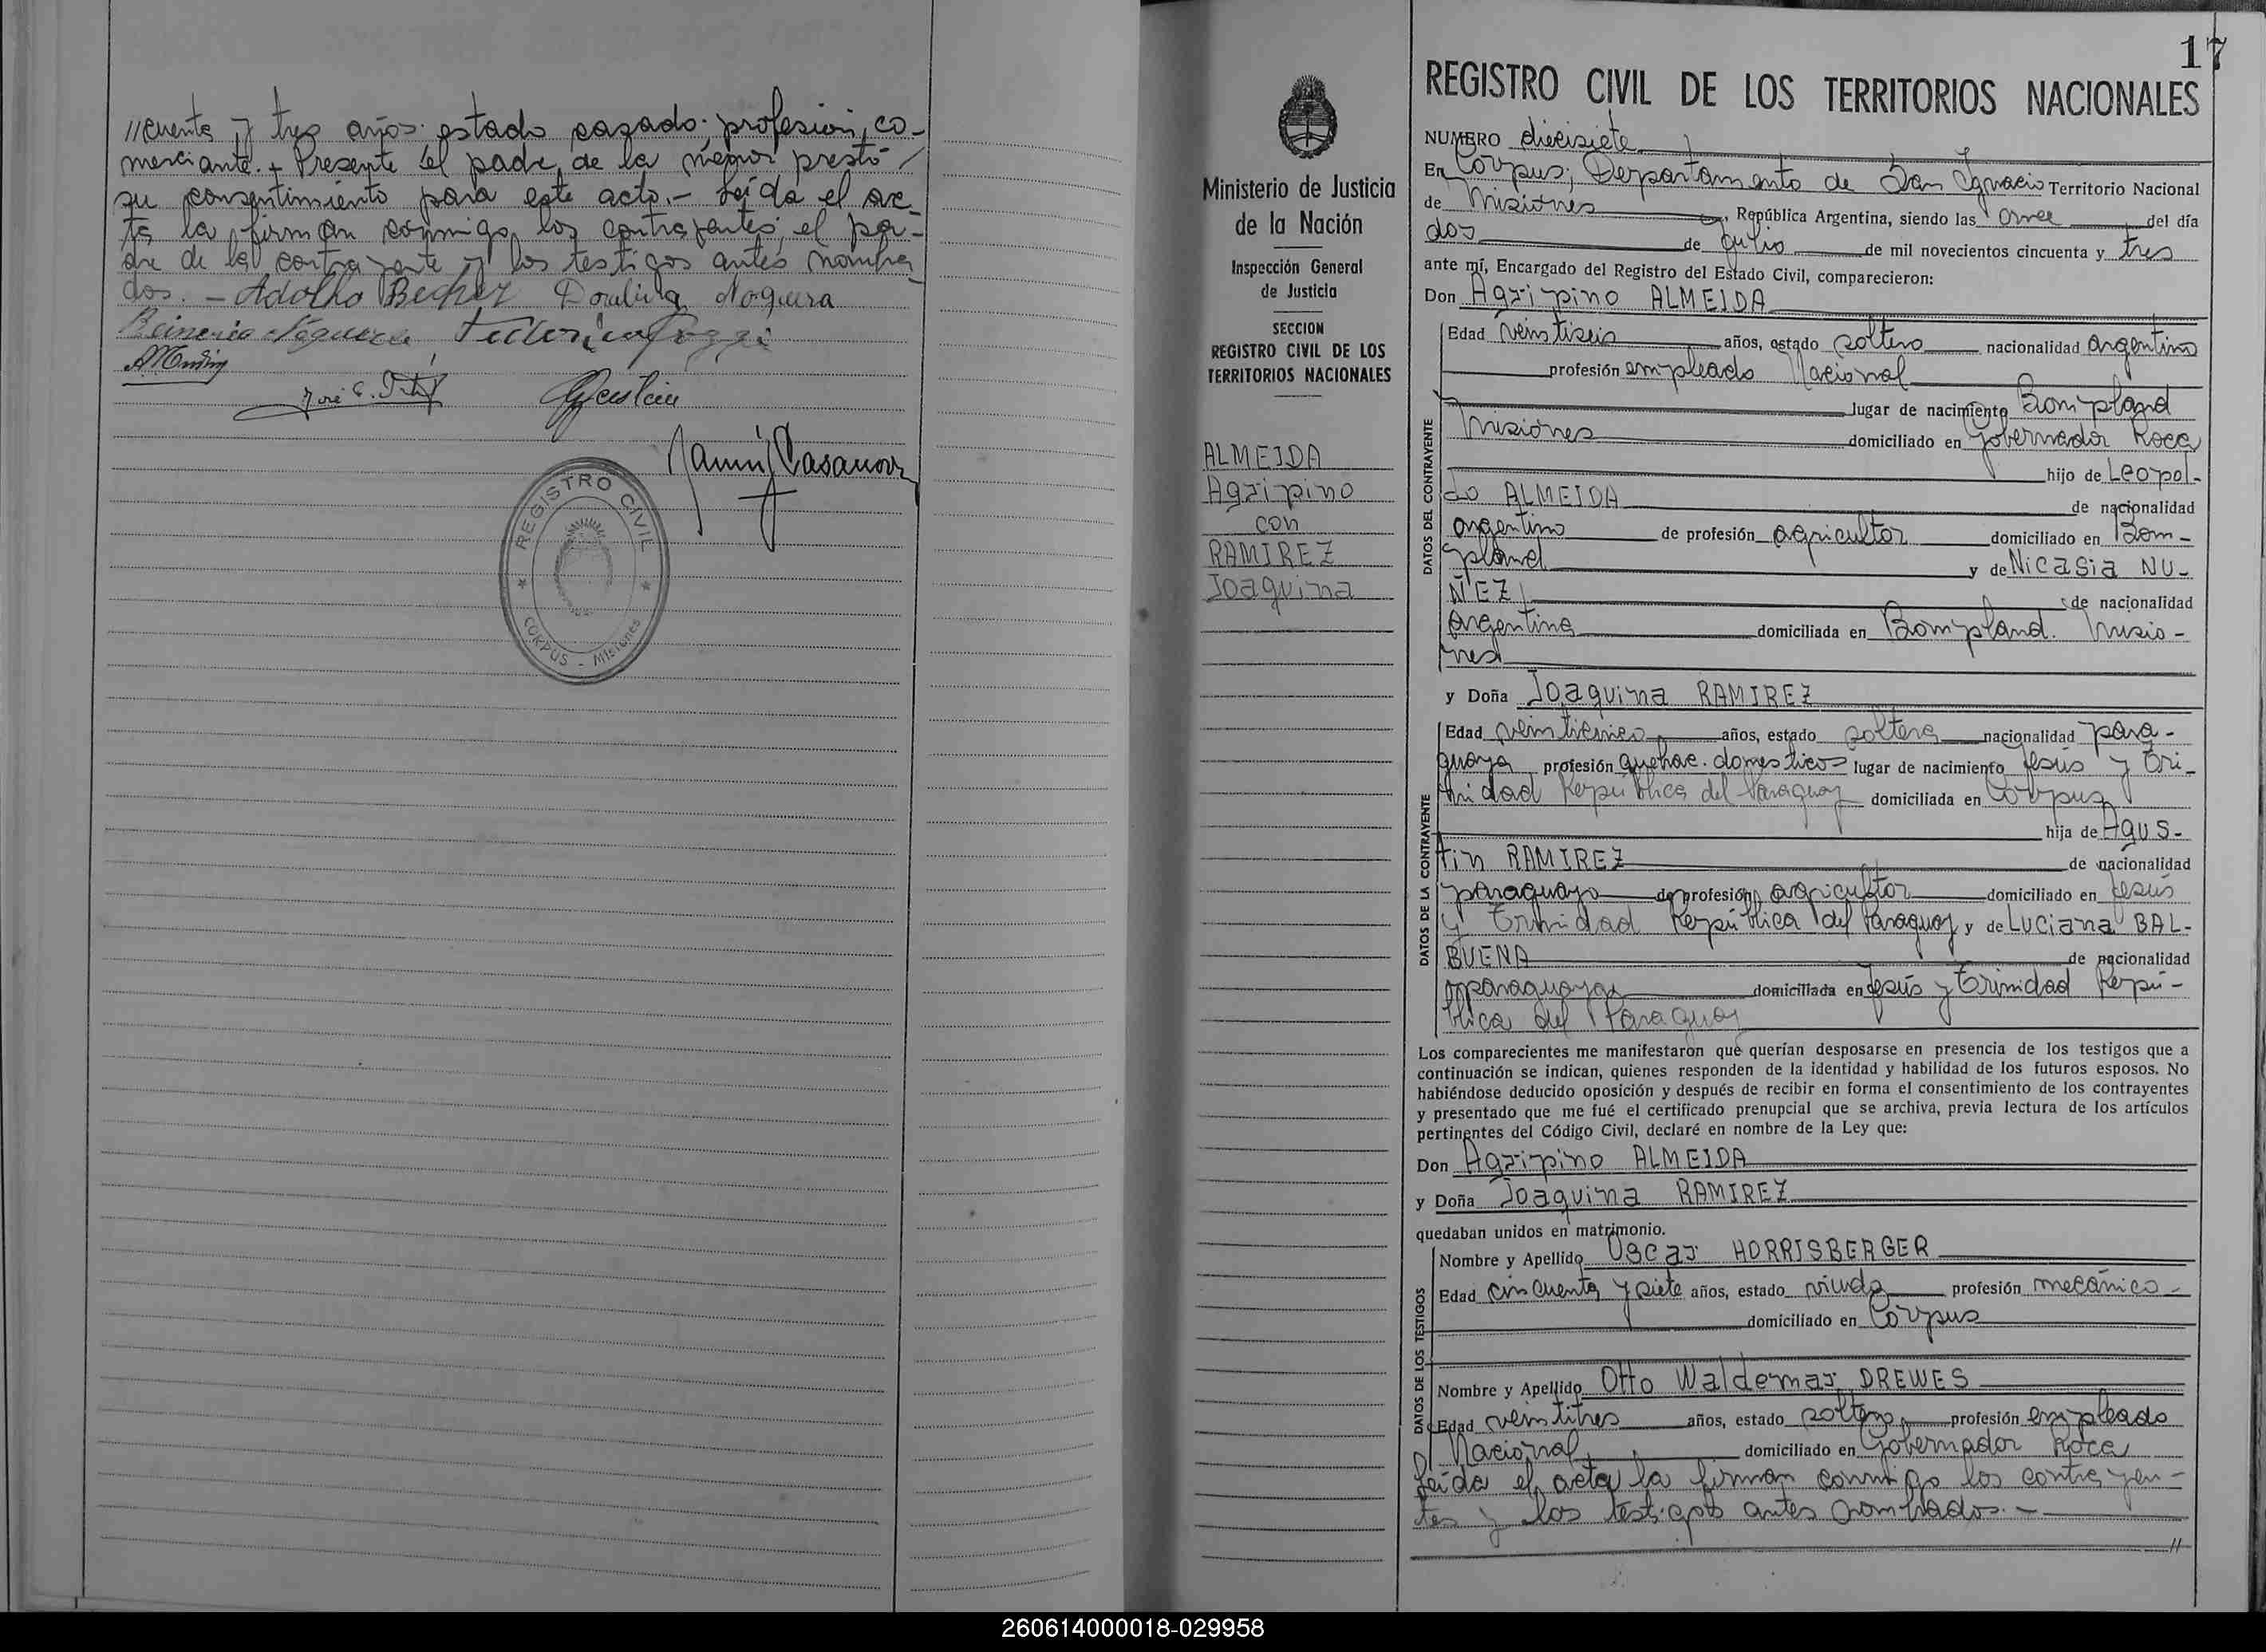 //cuenta y tres años. estado casado. profesión, co-
merciante. + Presente el padre de la menor prestó
su consentimiento para este acto.- Leída el ac-
ta la firman conmigo los contrayentes, el pa-
dre de la contrayente y los testigos antes nombra
dos. - Adolfo Becker Doralina Noguera
REGISTRO CIVIL
CORPUS - Misiones
Ministerio de Justicia
de la Nación
Inspección General
de Justicia
SECCION
REGISTRO CIVIL DE LOS
TERRITORIOS NACIONALES
ALMEIDA
Agripino
con
RAMIREZ
Joaquina
17
REGISTRO CIVIL DE LOS TERRITORIOS NACIONALES
NUMERO diecisiete
En Corpus, Departamento de San Ignacio Territorio Nacional
de Misiones, República Argentina, siendo las once del día
dos de Julio de mil novecientos cincuenta y tres
ante mí, Encargado del Registro del Estado Civil, comparecieron:
Don Agripino ALMEIDA
DATOS DEL CONTRAYENTE
Edad veintiseis años, estado soltero nacionalidad argentino
profesión empleado Nacional
lugar de nacimiento Bompland
Misiones domiciliado en Gobernador Roca
hijo de Leopol-
do ALMEIDA de nacionalidad
argentino de profesión agricultor domiciliado en Bom-
pland y de Nicasia NU-
ÑEZ de nacionalidad
argentina domiciliada en Bompland. Misio-
nes
y Doña Joaquina RAMIREZ
DATOS DE LA CONTRAYENTE
Edad veinticinco años, estado soltera nacionalidad para-
guaya profesión quehac. domesticos lugar de nacimiento Jesús y Tri-
nidad República del Paraguay domiciliada en Corpus
hija de Agus-
tin RAMIREZ de nacionalidad
paraguayo de profesión agricultor domiciliado en Jesús
y Trinidad República del Paraguay y de Luciana BAL-
BUENA de nacionalidad
paraguaya domiciliada en Jesús y Trinidad Repú-
blica del Paraguay
Los comparecientes me manifestaron que querían desposarse en presencia de los testigos que a
continuación se indican, quienes responden de la identidad y habilidad de los futuros esposos. No
habiéndose deducido oposición y después de recibir en forma el consentimiento de los contrayentes
y presentado que me fué el certificado prenupcial que se archiva, previa lectura de los artículos
pertinentes del Código Civil, declaré en nombre de la Ley que:
Don Agripino ALMEIDA
y Doña Joaquina RAMIREZ
quedaban unidos en matrimonio.
DATOS DE LOS TESTIGOS
Nombre y Apellido Oscar HORRISBERGER
Edad cincuenta y siete años, estado viudo profesión mecánico-
domiciliado en Corpus
Nombre y Apellido Otto Waldemar DREWES
Edad veintitres años, estado soltero profesión empleado
Nacional domiciliado en Gobernador Roca
Leída el acta la firman conmigo los contrayen-
tes y los testigos antes nombrados.-
//
260614000018-029958